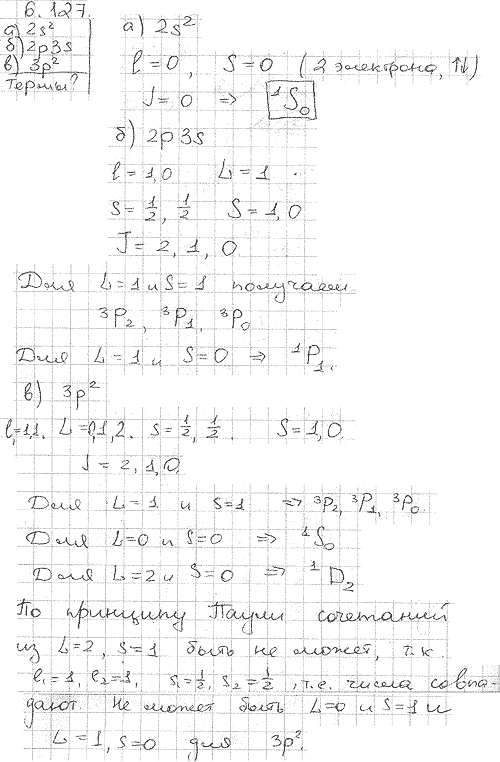 6.127.
а) 2s²
б) 2p3s
в) 3p²
Термы?
а) 2s²
l=0, S=0 (2 электрона, ↑↓)
J=0 => ¹S₀
б) 2p 3s
l=1,0 L=1.
s=1/2, 1/2 S=1,0
J=2, 1, 0.
Для L=1 и S=1 получаем
³P₂, ³P₁, ³P₀
Для L=1 и S=0 => ¹P₁.
в) 3p²
l=1,1. L=0,1,2. s=1/2, 1/2. S=1,0.
J=2,1,0.
Для L=1 и S=1 => ³P₂, ³P₁, ³P₀.
Для L=0 и S=0 => ¹S₀
Для L=2 и S=0 => ¹D₂
По принципу Паули сочетаний
из L=2, S=1 быть не может, т.к.
l₁=1, l₂=1, s₁=1/2, s₂=1/2, т.е. числа совпа-
дают. Не может быть L=0 и S=1 и
L=1, S=0 для 3p².